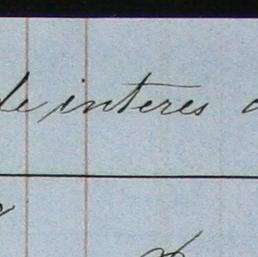 de interes